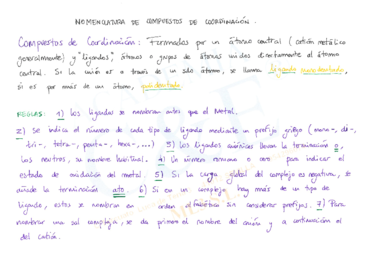 NOMENCLATURA DE COMPUESTOS DE COORDINACIÓN.
Compuestos de Coordinación: Formados por un átomo central (catión metálico
generalmente) y "ligandos", átomos o grupos de átomos unidos directamente al átomo
central. Si la unión es a través de un sólo átomo, se llama ligando monodentado,
si es por más de un átomo, quelidentado.
REGLAS: 1) Los ligandos se nombran antes que el Metal.
2) Se indica el número de cada tipo de ligando mediante un prefijo griego (mono-, di-,
tri-, tetra-, penta-, hexa-, ...) 3) Los ligandos aniónicos llevan la terminación o,
los neutros, su nombre habitual. 4) Un número romano o cero para indicar el
estado de oxidación del metal. 5) Si la carga global del complejo es negativa, se
añade la terminación ato. 6) Si en un complejo hay más de un tipo de
ligando, estos se nombran en orden alfabético sin considerar prefijos. 7) Para
nombrar una sal compleja, se da primero el nombre del anión y a continuación el
del catión.